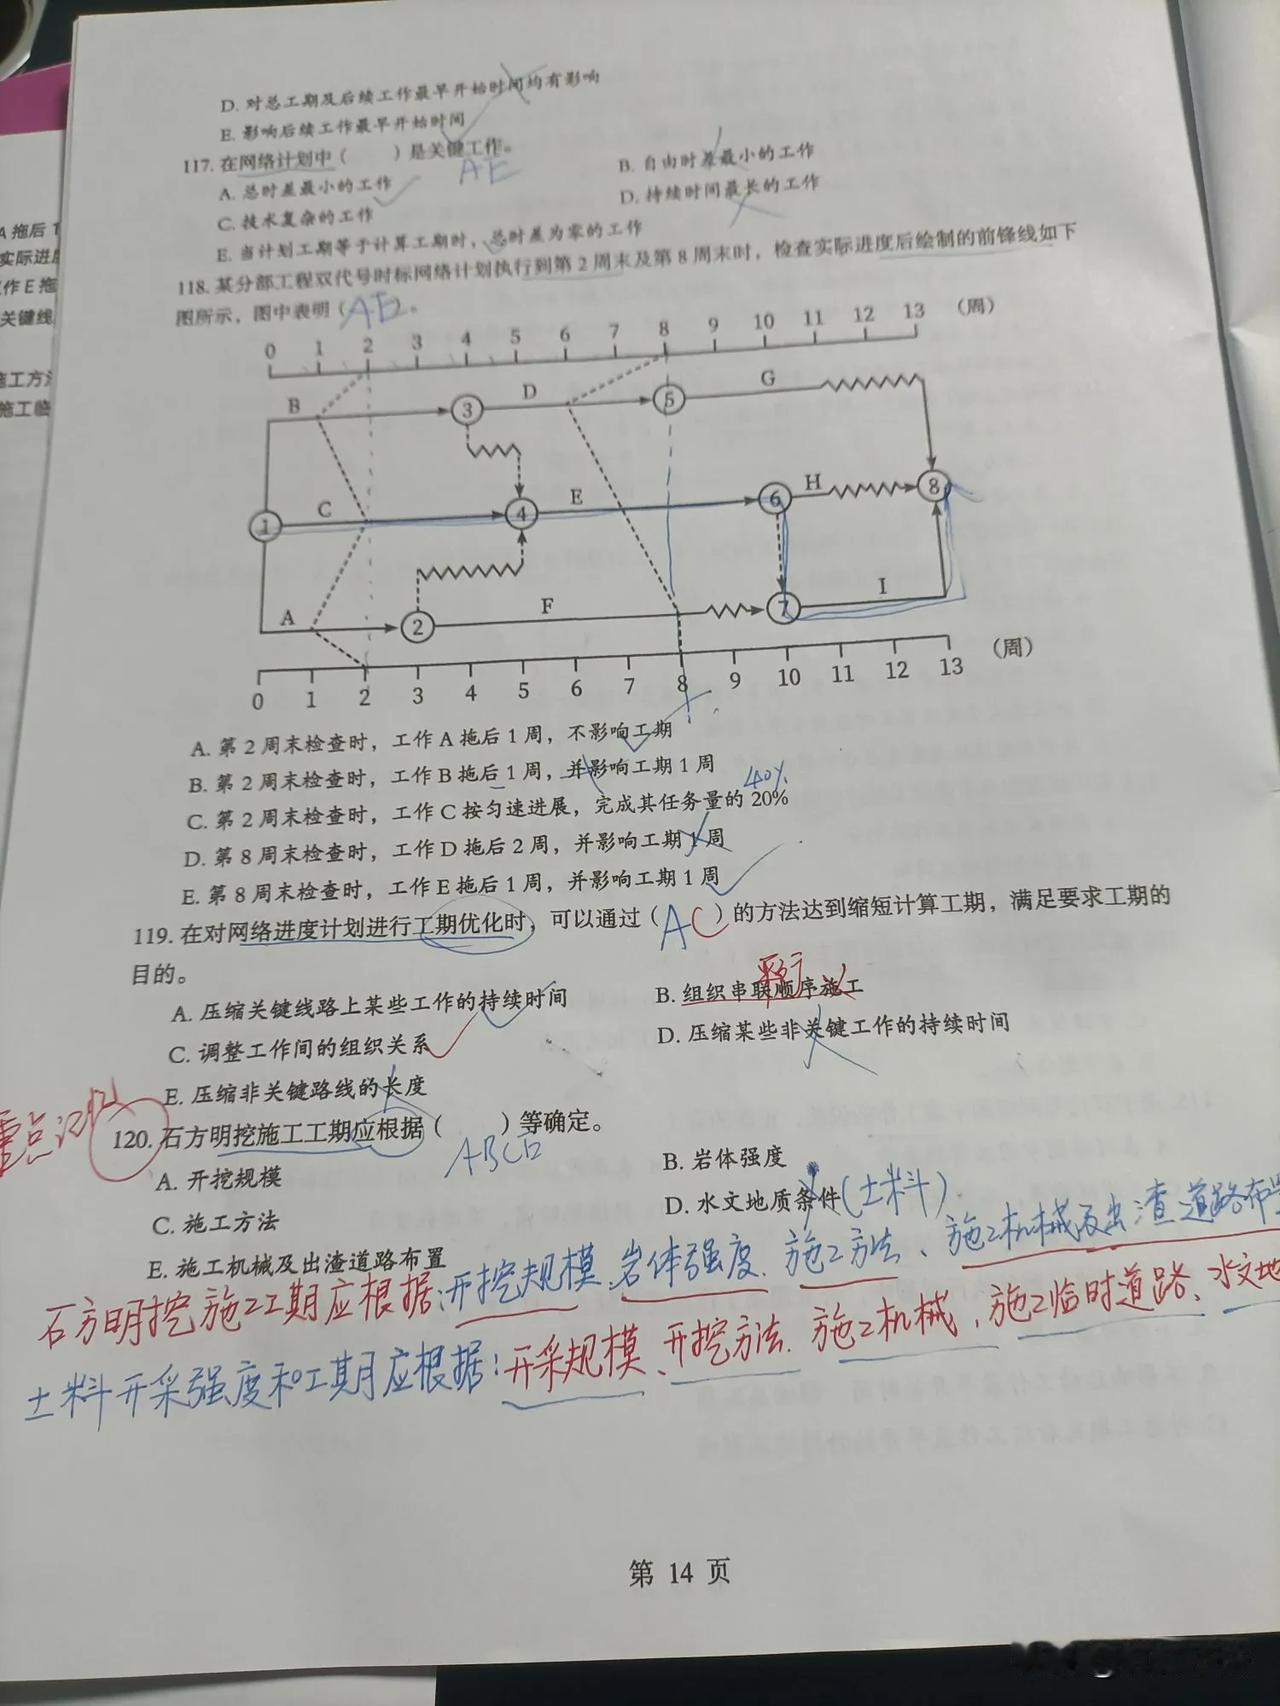 D. 对总工期及后续工作最早开始时间均有影响
E. 影响后续工作最早开始时间
117. 在网络计划中（ ）是关键工作。
AE
A. 总时差最小的工作
B. 自由时差最小的工作
C. 技术复杂的工作
D. 持续时间最长的工作
E. 当计划工期等于计算工期时，总时差为零的工作
118. 某分部工程双代号时标网络计划执行到第 2 周末及第 8 周末时，检查实际进度后绘制的前锋线如下
图所示，图中表明（AE）。
0 1 2 3 4 5 6 7 8 9 10 11 12 13 （周）
B 3 D 5 G
1 C 4 E 6 H 8
A 2 F 7 I
0 1 2 3 4 5 6 7 8 9 10 11 12 13 （周）
A. 第 2 周末检查时，工作 A 拖后 1 周，不影响工期
B. 第 2 周末检查时，工作 B 拖后 1 周，并影响工期 1 周
40%
C. 第 2 周末检查时，工作 C 按匀速进展，完成其任务量的 20%
D. 第 8 周末检查时，工作 D 拖后 2 周，并影响工期 1 周
E. 第 8 周末检查时，工作 E 拖后 1 周，并影响工期 1 周
119. 在对网络进度计划进行工期优化时，可以通过（AC）的方法达到缩短计算工期，满足要求工期的
目的。
A. 压缩关键线路上某些工作的持续时间
B. 组织串联顺序施工
C. 调整工作间的组织关系
D. 压缩某些非关键工作的持续时间
E. 压缩非关键路线的长度
重点记忆
120. 石方明挖施工工期应根据（ ）等确定。
A. 开挖规模
B. 岩体强度
C. 施工方法
D. 水文地质条件(土料)
E. 施工机械及出渣道路布置
石方明挖施工工期应根据:开挖规模、岩体强度、施工方法、施工机械及出渣道路布置
土料开采强度和工期应根据:开采规模、开挖方法、施工机械、施工临时道路、水文地
第 14 页
A 拖后 1
实际进度
作 E 拖
关键线
施工方法
施工临